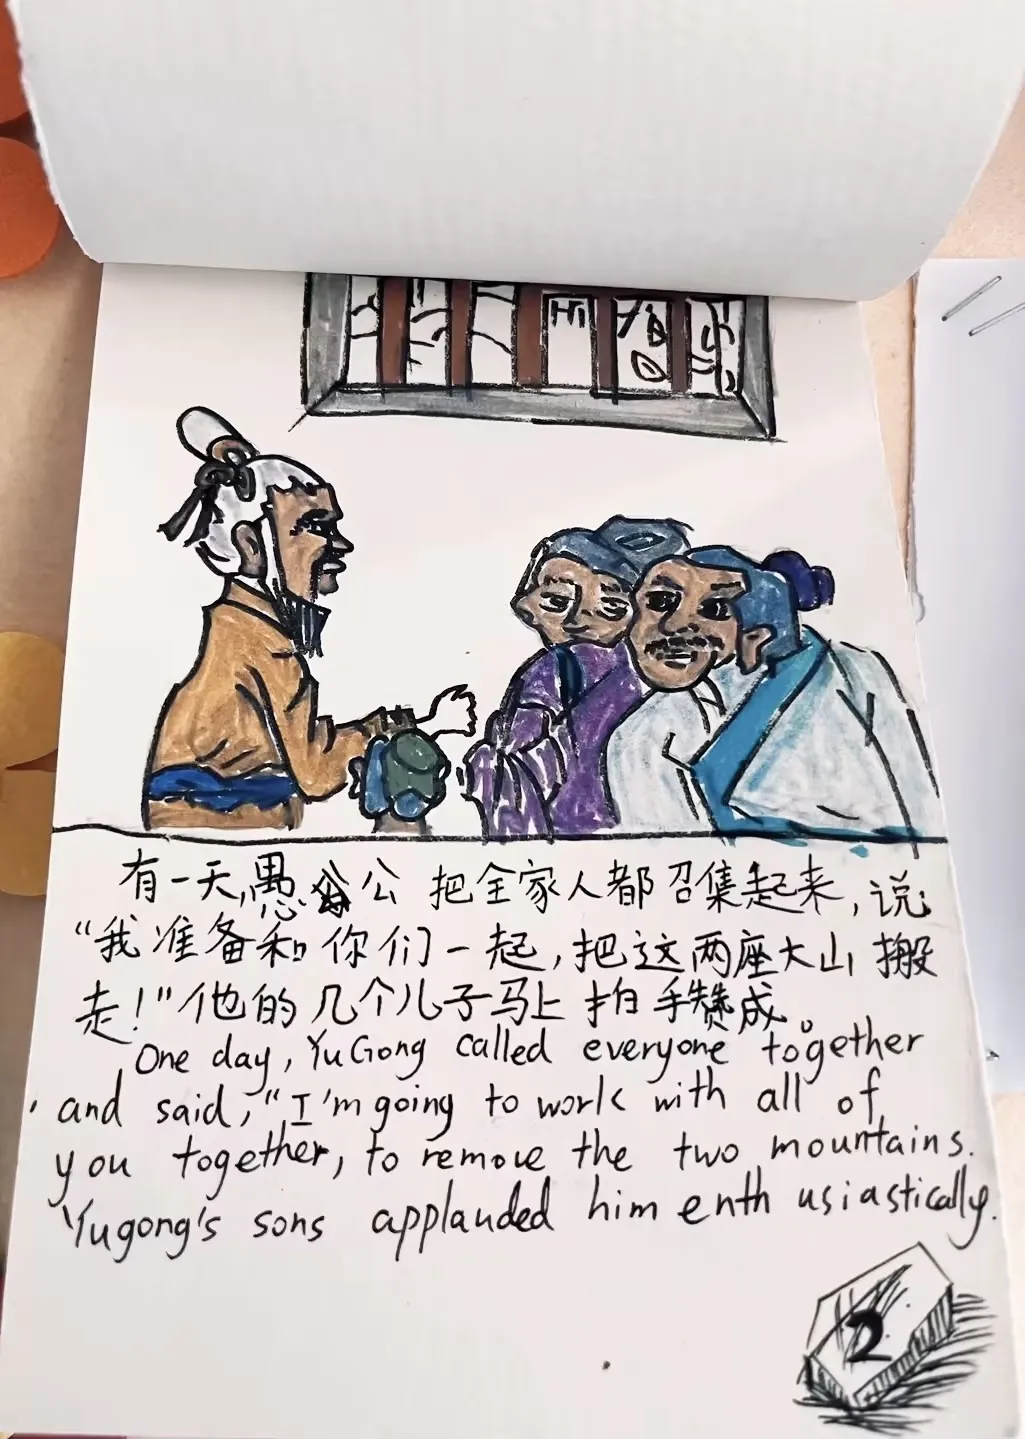 有一天,愚公 把全家人都召集起来,说:
“我准备和你们一起,把这两座大山搬
走!”他的几个儿子马上拍手赞成。
One day, YuGong called everyone together
and said, "I'm going to work with all of
you together, to remove the two mountains.
Yugong's sons applauded him enthusiastically.
2